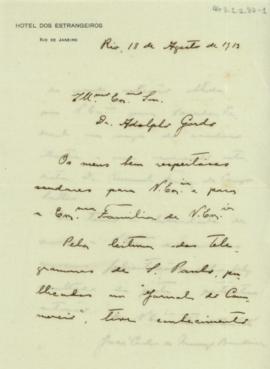 HOTEL DOS ESTRANGEIROS
RIO DE JANEIRO
Rio, 18 de Agosto de 1913
Illmo Exmo Snr.
Dr. Adolpho Gordo
Os meus bem respeitosos
saudares para V. Excia e para
a Exma Familia de V. Excia
Pela leitura dos tele-
grammas de S. Paulo, pu-
blicados no "Jornal do Com-
mercio", tive conhecimento